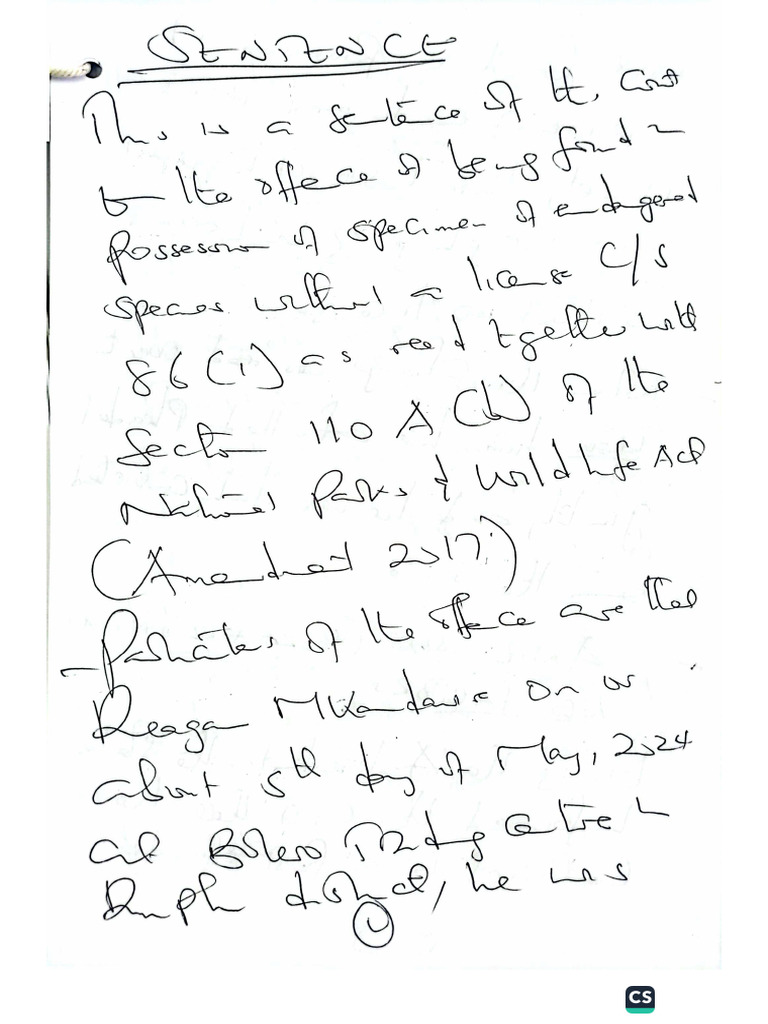 SENTENCE
This is a sentence of the Court
for the offence of being found in
possession of specimen of endangered
species without a license C/S
86(1) as read together with
Section 110 A (b) of the
National Parks & Wildlife Act
(Amendment 2017)
- Particulars of the offence are that
Reagan Mkandawire on or
about 5th day of May, 2024
at Bolero Trading Centre in
Rumphi district, he was
CS